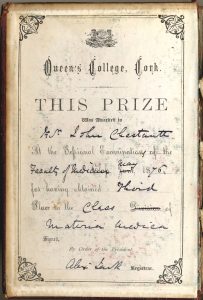 Queen's College, Cork.
THIS PRIZE
Was Awarded to
Mr John
At the Sessional Examinations of the
Faculty of Medicine 1876,
for having obtained Third
Place in the Class of
Materia Medica
Signed,
By Order of the President,
Alex Registrar.